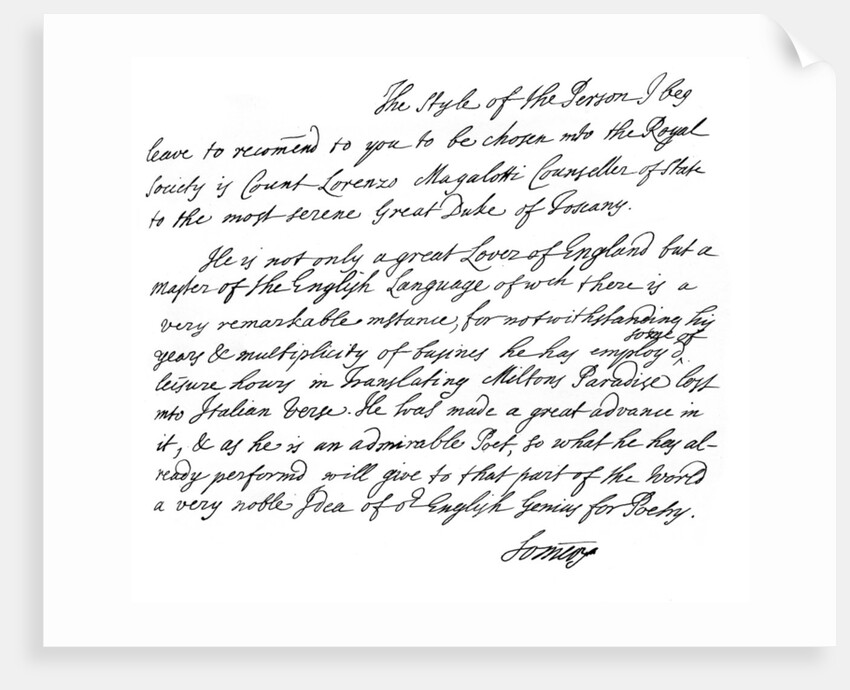 The Style of the Person I beg
leave to recom̄end to you to be chosen into the Royal
Society is Count Lorenzo Magalotti Counseller of State
to the most serene Great Duke of Toscany.
He is not only a great Lover of England but a
master of the English Language of wch there is a
very remarkable instance, for notwithstanding his
some of
years & multiplicity of busines he has employ'd ^
leisure hours in Translating Miltons Paradise lost
into Italian Verse. He has made a great advance in
it, & as he is an admirable Poet, so what he has al-
ready perform'd will give to that part of the World
a very noble Idea of or English Genius for Poetry.
Somers